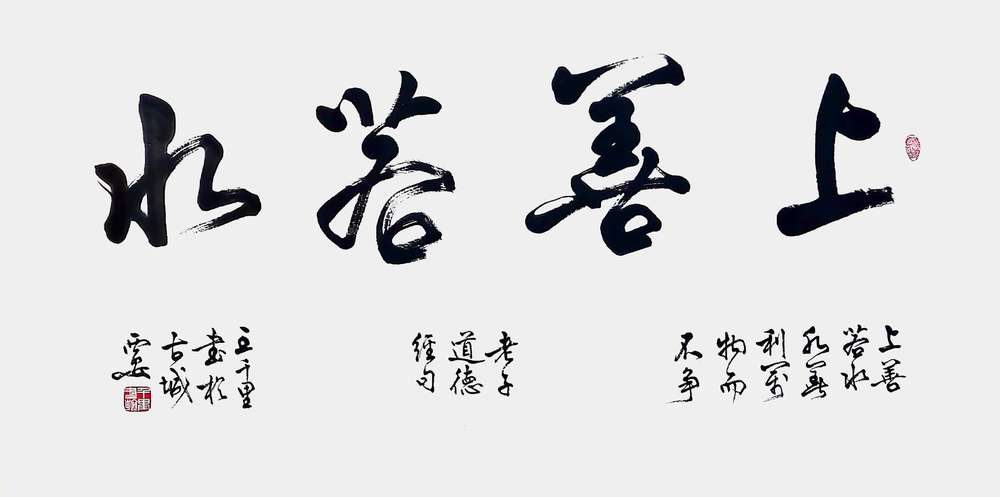 上善若水
上善
若水
水善
利萬
物而
不争
老子
道德
經句
王千里
書於
古城
西安